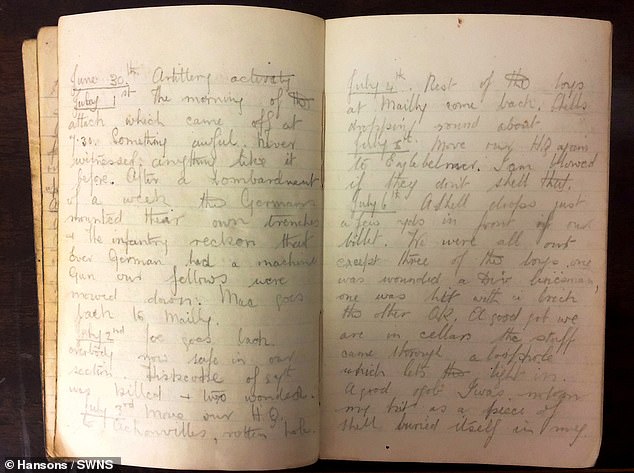 June 30th. Artillery activity
July 1st The morning of the
attack which came off at
7.30. Something awful. Never
witnessed anything like it
before. After a bombardment
of a week the Germans
mounted their own trenches
& the infantry reckon that
every German had a machine
gun our fellows were
mowed down. Mac goes
back to Mailly.
July 2nd Joe goes back.
everybody now safe in our
section. of
was killed & two wounded.
July 3rd Move our H.Q.
to Auchonvilles, rotten hole.
July 4th. Rest of the boys
at Mailly come back. Shells
dropping round about
July 5th. Move our H.Q. again
to Englebelmer. I am blowed
if they don't shell that.
July 6th A shell drops just
a few yds in front of our
billet. We were all out
except three of the boys. one
was wounded, a Div. linesman,
one was hit with a brick
the other O.K. A good job we
are in cellars the stuff
came through a loophole
which lets the light in.
A good job I was
my kit as a piece of
shell buried itself in my
Hansons / SWNS